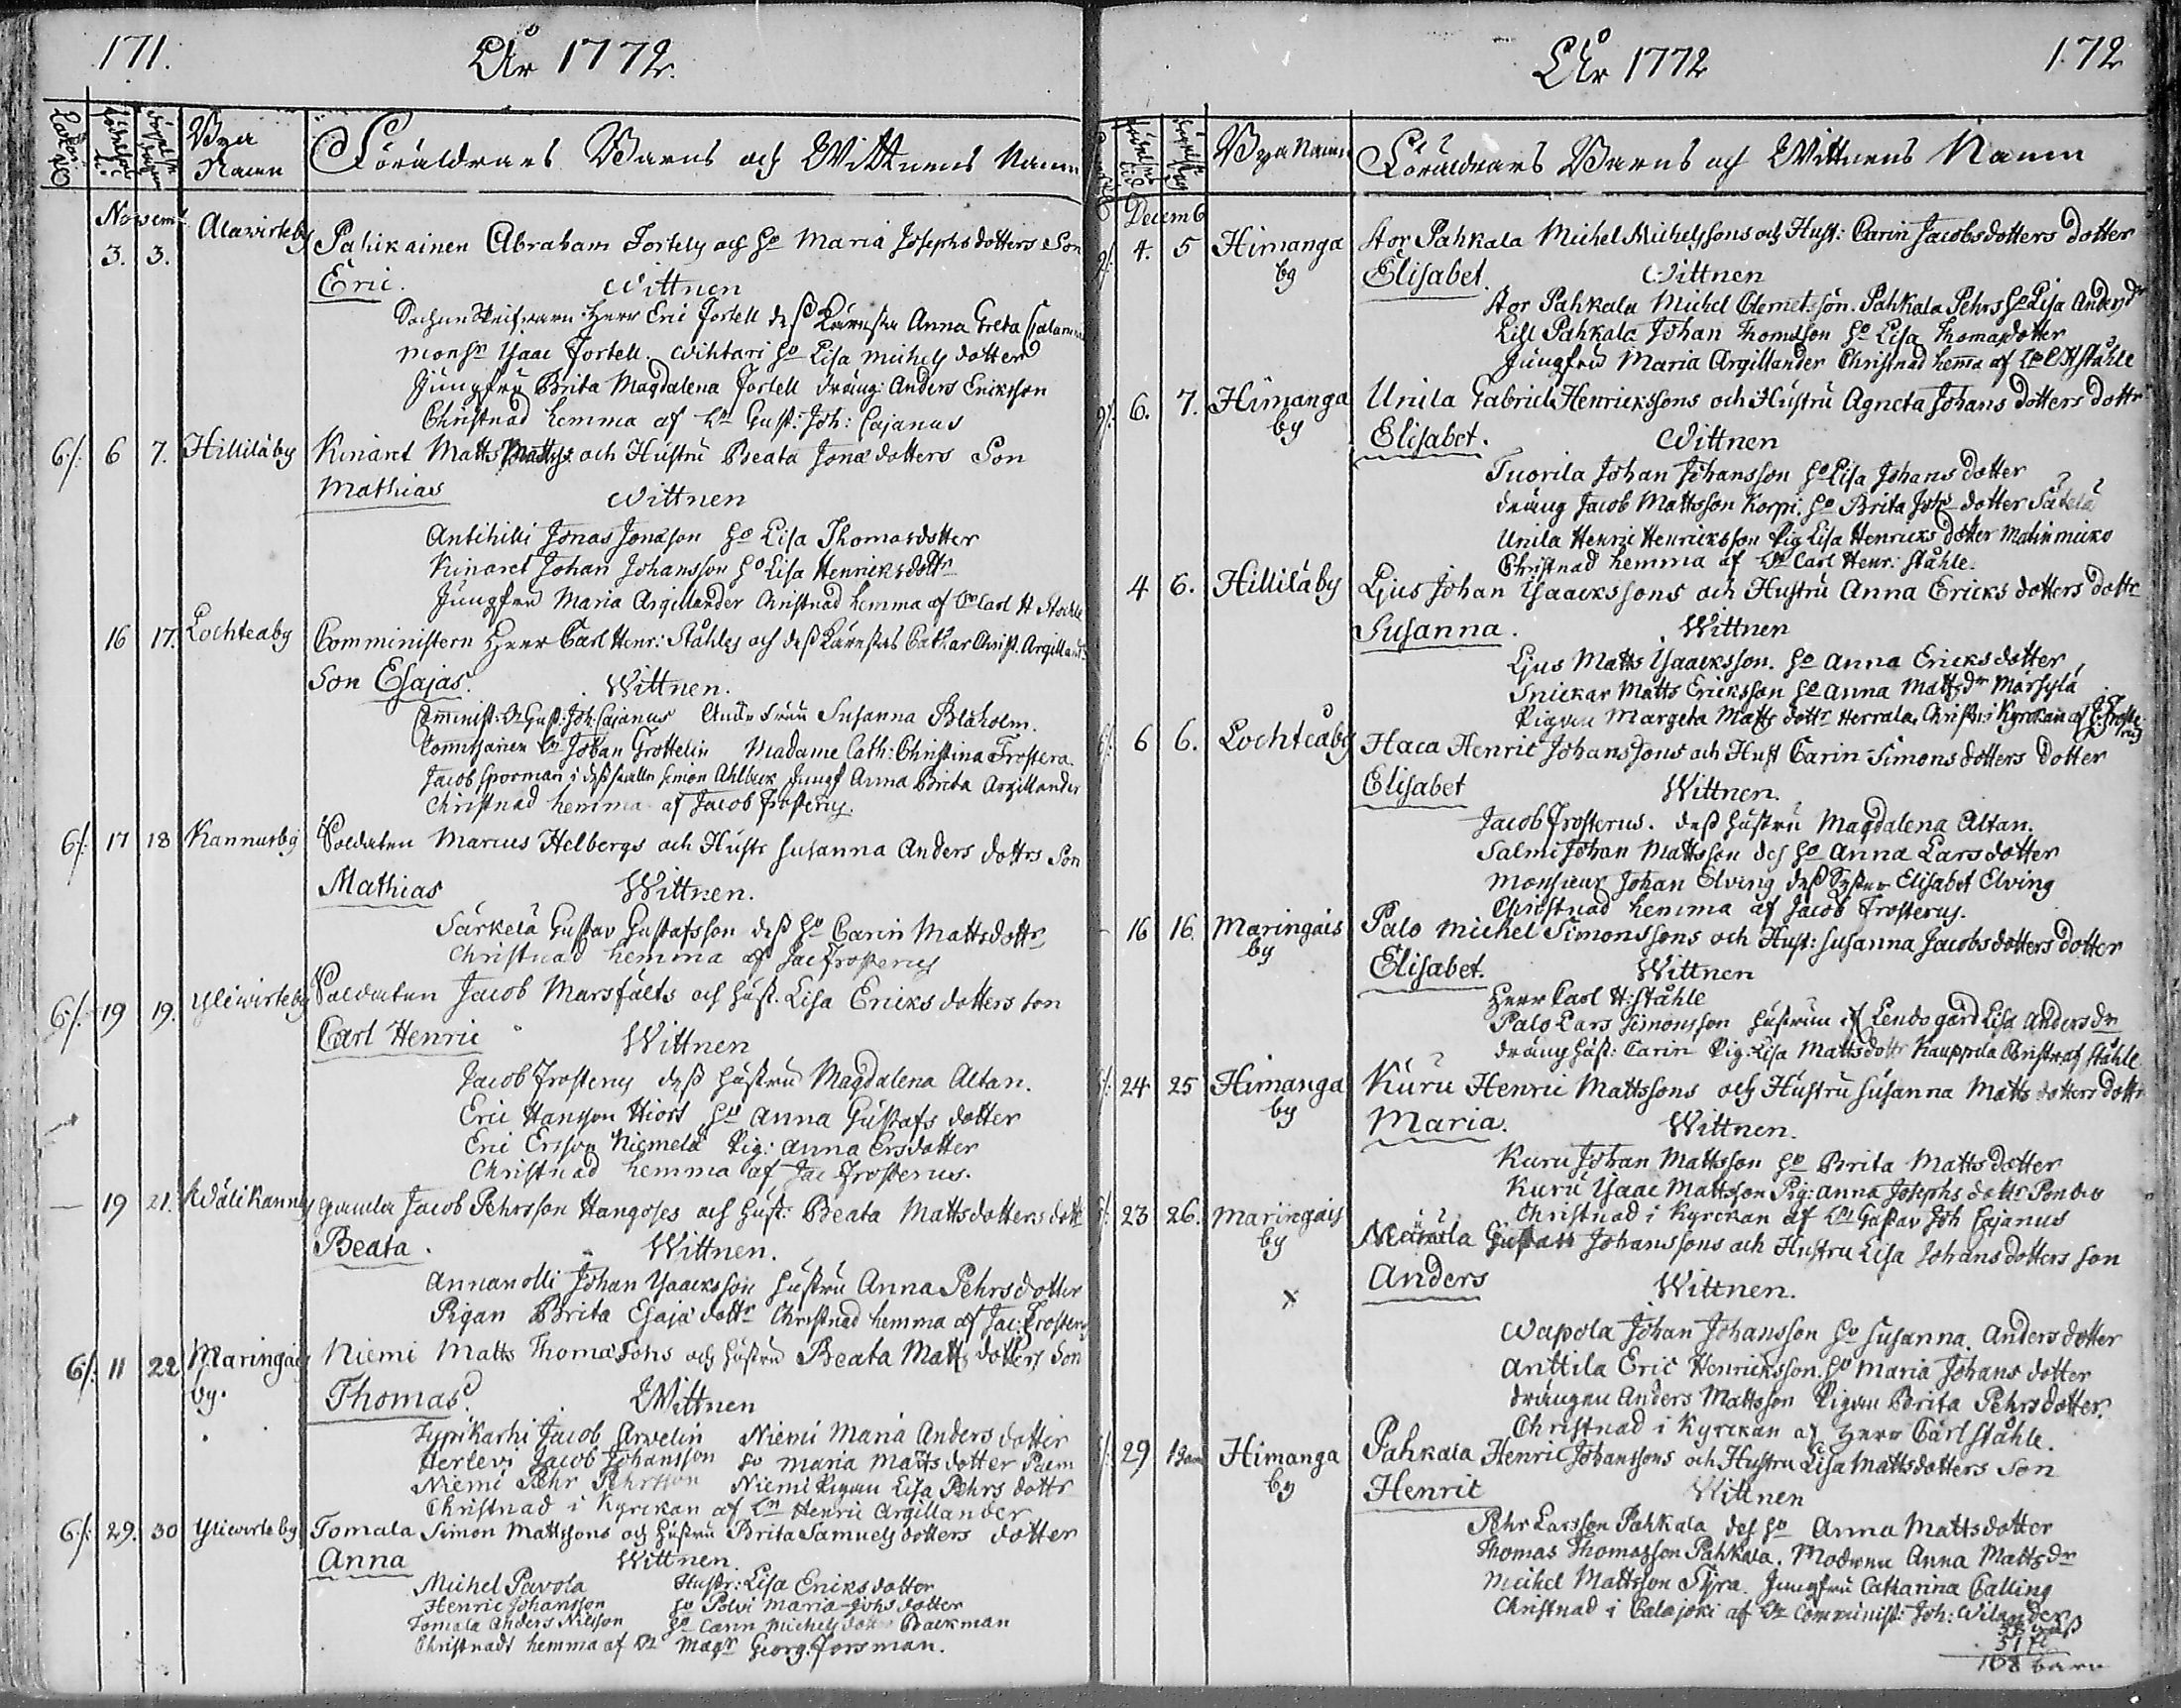 171.
År 1772.
Bya Namn
Föräldrars Barns och Wittnens Namn
Novemb
3. 3. Alawirteby Pahikainen Abraham Fortely och Ho Maria Josephsdotters Son
Eric. Wittnen
Herr Eric Fortell deß Käresta Anna Greta Calamnius
Monsr Isaac Fortell. Wihtari Ho Lisa Michels dotter
Jungfru Brita Magdalena Fortell dräng: Anders Eriksson
Christnad hemma af Hr Gust: Joh: Cajanus
6/: 6 7. Hilliläby Kinaret Matts Mattss: och Hustru Beata Jonæ dotters Son
Mathias Wittnen
Antihilli Jonas Jonæson Ho Lisa Thomasdotter
Kinaret Johan Johansson Ho Lisa Henriksdottr
Jungfru Maria Argillander Christnad hemma af Hr Carl H Ståhle
16 17. Lochteaby Comministern Herr Carl Henr: Ståhles och deß Kärestas Cathar Christ. Argilland:
Son Esajas. Wittnen.
Comminist: Hr Gust: Joh: Cajanus Susanna Blåholm.
Hr Johan Grottelin Madame Cath: Christina Frostera.
Jacob Sporman Simon Ahlbeck Jungf Anna Brita Argillander
Christnad hemma af Jacob Frosterus.
6/: 17 18 Kannusby Soldaten Marcus Helbergs och Hustr Susanna Anders dottrs Son
Mathias Wittnen.
Särkelä Gustav Gustafsson deß Ho Carin Mattsdottr
Christnad hemma af Jac Frosterus
6/: 19 19. Yliwirteby Soldaten Jacob Marsfälts och Hust. Lisa Eriks dotters son
Carl Henric Wittnen
Jacob Frosterus deß Hustru Magdalena Altan.
Eric Hansson Hiort Ho Anna Gustafs dotter
Eric Ersson Niemelä Pig: Anna Ersdotter
Christnad hemma af Jac Frosterus.
— 19 21. Wälikannus Gamla Jacob Pehrsson Hangoses och Hust: Beata Mattsdotters dottr
Beata. Wittnen.
Annanolli Johan Isaacksson Hustru Anna Pehrsdotter
Pigan Brita Esajæ dottr Christnad hemma af Jac: Frosterus
6/: 11 22 Maringais by. Niemi Matts Thomæsons och Hustru Beata Matts dotters Son
Thomas. Wittnen
Typikarhi Jacob Arwelin Niemi Maria Anders dotter
Herlevi Jacob Johansson Ho Maria Matts dotter Palm
Niemi Pehr Pehrsson Niemi Pigan Lisa Pehrs dottr
Christnad i Kyrckan af Hr Henric Argillander
6/: 29. 30 Yliwirteby Tomala Simon Mattssons och Hustru Brita Samuels dotters dotter
Anna Wittnen.
Michel Pavola Hustr: Lisa Eriks dotter
Henric Johansson Ho Polvi Maria Johs dotter
Tomala Anders Nilsson Ho Carin Michels dotter Backman
Christnadt hemma af Hr Magr Georg: Forsman.
År 1772
172
Bya Namn
Föräldrars Barns och Wittnens Namn
Decemb
4. 5 Himanga by Stor Pahkala Michel Michelssons och Hust: Carin Jacobsdotters dotter
Elisabet. Wittnen
Stor Pahkala Michel Clemetsson. Pahkala Pehrs Ho Lisa Anders dr
Lill Pahkala Johan Thomasson Ho Lisa Thomasdotter
Jungfru Maria Argillander Christnad hemma af Hr C H Ståhle
6. 7. Himanga by Unila Gabriel Henrickssons och Hustru Agneta Johans dotters dottr
Elisabet. Wittnen
Tuorila Johan Johansson Ho Lisa Johans dotter
dräng Jacob Mattsson Korpi. Ho Brita Johs dotter Sätelä
Unila Henric Henricksson Pig Lisa Henricks dotter
Christnad hemma af Hr Carl Henr: Ståhle.
4 6. Hilliläby Ljus Johan Isaackssons och Hustru Anna Ericks dotters dottr
Susanna. Wittnen
Ljus Matts Isaacksson. Ho Anna Ericksdotter
Snickar Matts Ericksson Ho Anna Mattsdr Märsylä
Pigan Margeta Matts dottr Herrala, Christn: i Kyrckan af Jac Frosterus
6 6. Lochteåby Haca Henric Johanssons och Hust Carin Simons dotters dotter
Elisabet Wittnen.
Jacob Frosterus. deß Hustru Magdalena Altan.
Salmi Johan Mattsson des Ho Anna Larsdotter
Monsieur Johan Elving deß Syster Elisabet Elving
Christnad hemma af Jacob Frosterus.
16 16. Maringais by Palo Michel Simonssons och Hust: Susanna Jacobsdotters dotter
Elisabet. Wittnen
Herr Carl H: Ståhle
Palo Lars Simonsson Lisa Andersdr
Carin Pig: Lisa Mattsdottr Kauppila Christn af Ståhle
24 25 Himanga by Kuru Henric Mattssons och Hustru Susanna Matts dotters dottr
Maria. Wittnen.
Kuru Johan Mattsson Ho Brita Mattsdotter
Kuru Isaac Mattsson Pig: Anna Josephs dottr
Christnad i Kyrckan af Hr Gustav Joh Cajanus
23 26. Maringais by Gustav Johanssons och Hustru Lisa Johansdotters son
x Anders Wittnen.
Wapola Johan Johansson Ho Susanna Andersdotter
Anttila Eric Henricksson. Ho Maria Johans dotter
drängen Anders Mattsson Pigan Brita Pehrsdotter.
Christnad i Kyrckan af Herr Carl Ståhle.
29 Himanga by Pahkala Henric Johanssons och Hustru Lisa Mattsdotters Son
Henric Wittnen
Pehr Larsson Pahkala des Ho Anna Mattsdotter
Thomas Thomasson Pahkala. Anna Mattsdr
Michel Mattsson Tyra. Jungfru Catharina Calling
Christnad i Calajoki af Hr Comminist: Joh: Wilander
108 barn